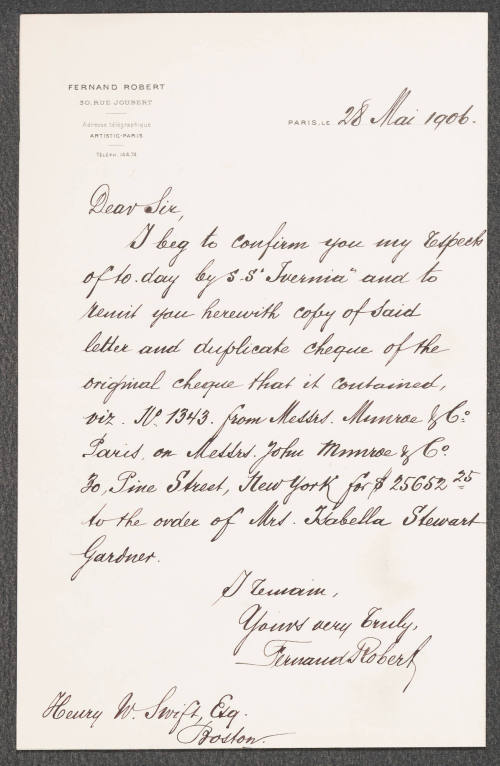 FERNAND ROBERT
30, RUE JOUBERT
Adresse télégraphique
ARTISTIC-PARIS
TÉLÉPH.
PARIS, LE 28 Mai 1906.
Dear Sir,
I beg to confirm you my respects
of to-day by S.S "Ivernia" and to
remit you herewith copy of said
letter and duplicate cheque of the
original cheque that it contained,
viz. No. 1343. from Messrs. Munroe & Co.
Paris, on Messrs. John Munroe & Co.
30, Pine Street, New York, for $ 25652 25
to the order of Mrs. Isabella Stewart
Gardner.
I remain,
Yours very truly,
Fernand Robert
Henry W. Swift, Esq.
Boston.